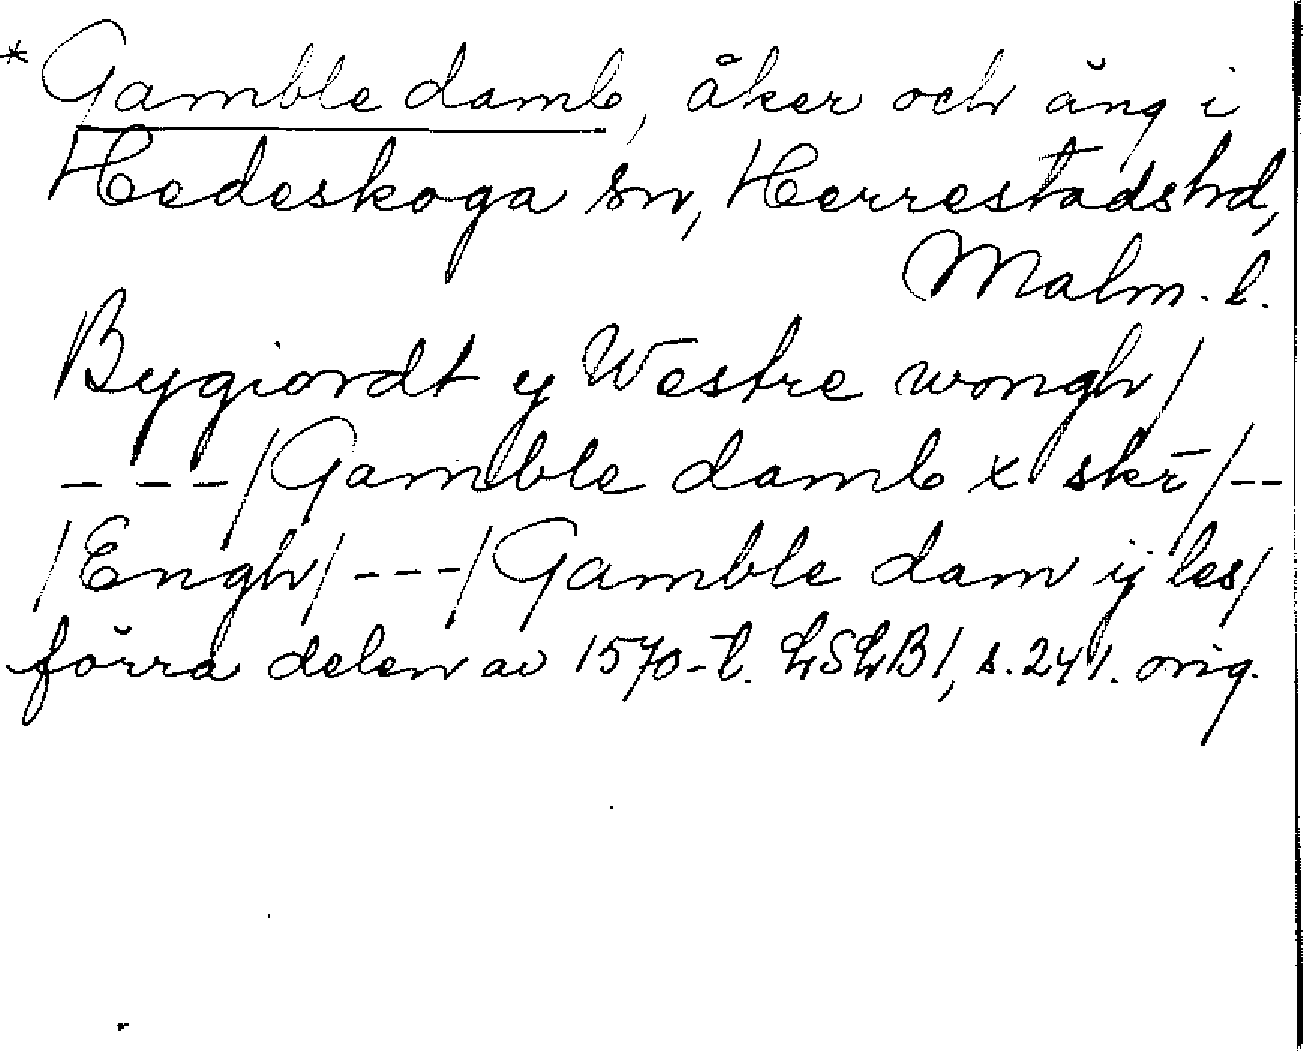 * Gamble damb, åker och äng i
Hedeskoga sn, Herrestads hd,
Malm. l.
Bygiordt y Westre wongh/
---/Gamble damb x skr̄/--
/Engh/---/Gamble dam ij les/
förra delen av 1570-t. LSLB1, s. 241. orig.